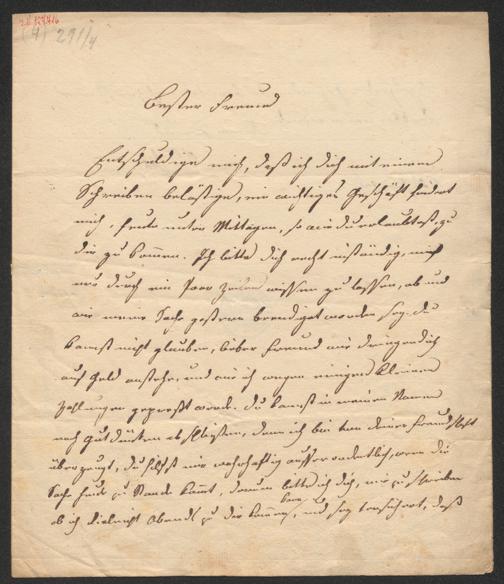 (4) 291/4
Bester Freund
Entschuldige mich, daß ich dich mit einem
Schreiben belästige, ein wichtiges Geschäft hindert
mich, heute unter Mittagen, so wie du erlaubtest, zu
dir zu kommen. Ich bitte dich recht inständig, mich
nur durch ein Paar Zeilen wissen zu lassen, ob und
wie meine Sache gestern beendiget worden sey. Du
kannst nicht glauben, lieber Freund wie dringendlich
auf Geld anstehe, und wie ich wegen einigen kleinen
Zahlungen gepreßt werde. Du kannst in meinem Namen
nach Gutdünken abschließen, denn ich bin von deiner Freundschaft
überzeugt, du hilfst mir wahrhaftig außerordentlich, wenn die
Sache heute zu Stande kömmt, darum bitte ich dich, mir zu schreiben
ob ich vielleicht Abends zu dir kommen kann, und sey versichert, daß